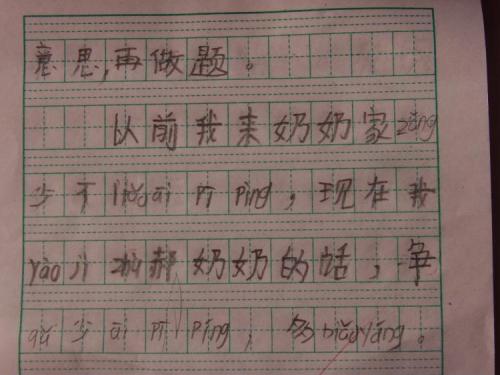 意思,再做题。
以前我来奶奶家zǒng
少不liǎo āi pī píng,现在我
yào jì 郝奶奶的话,争
qǔ 少 āi pī píng,多biǎo yáng。